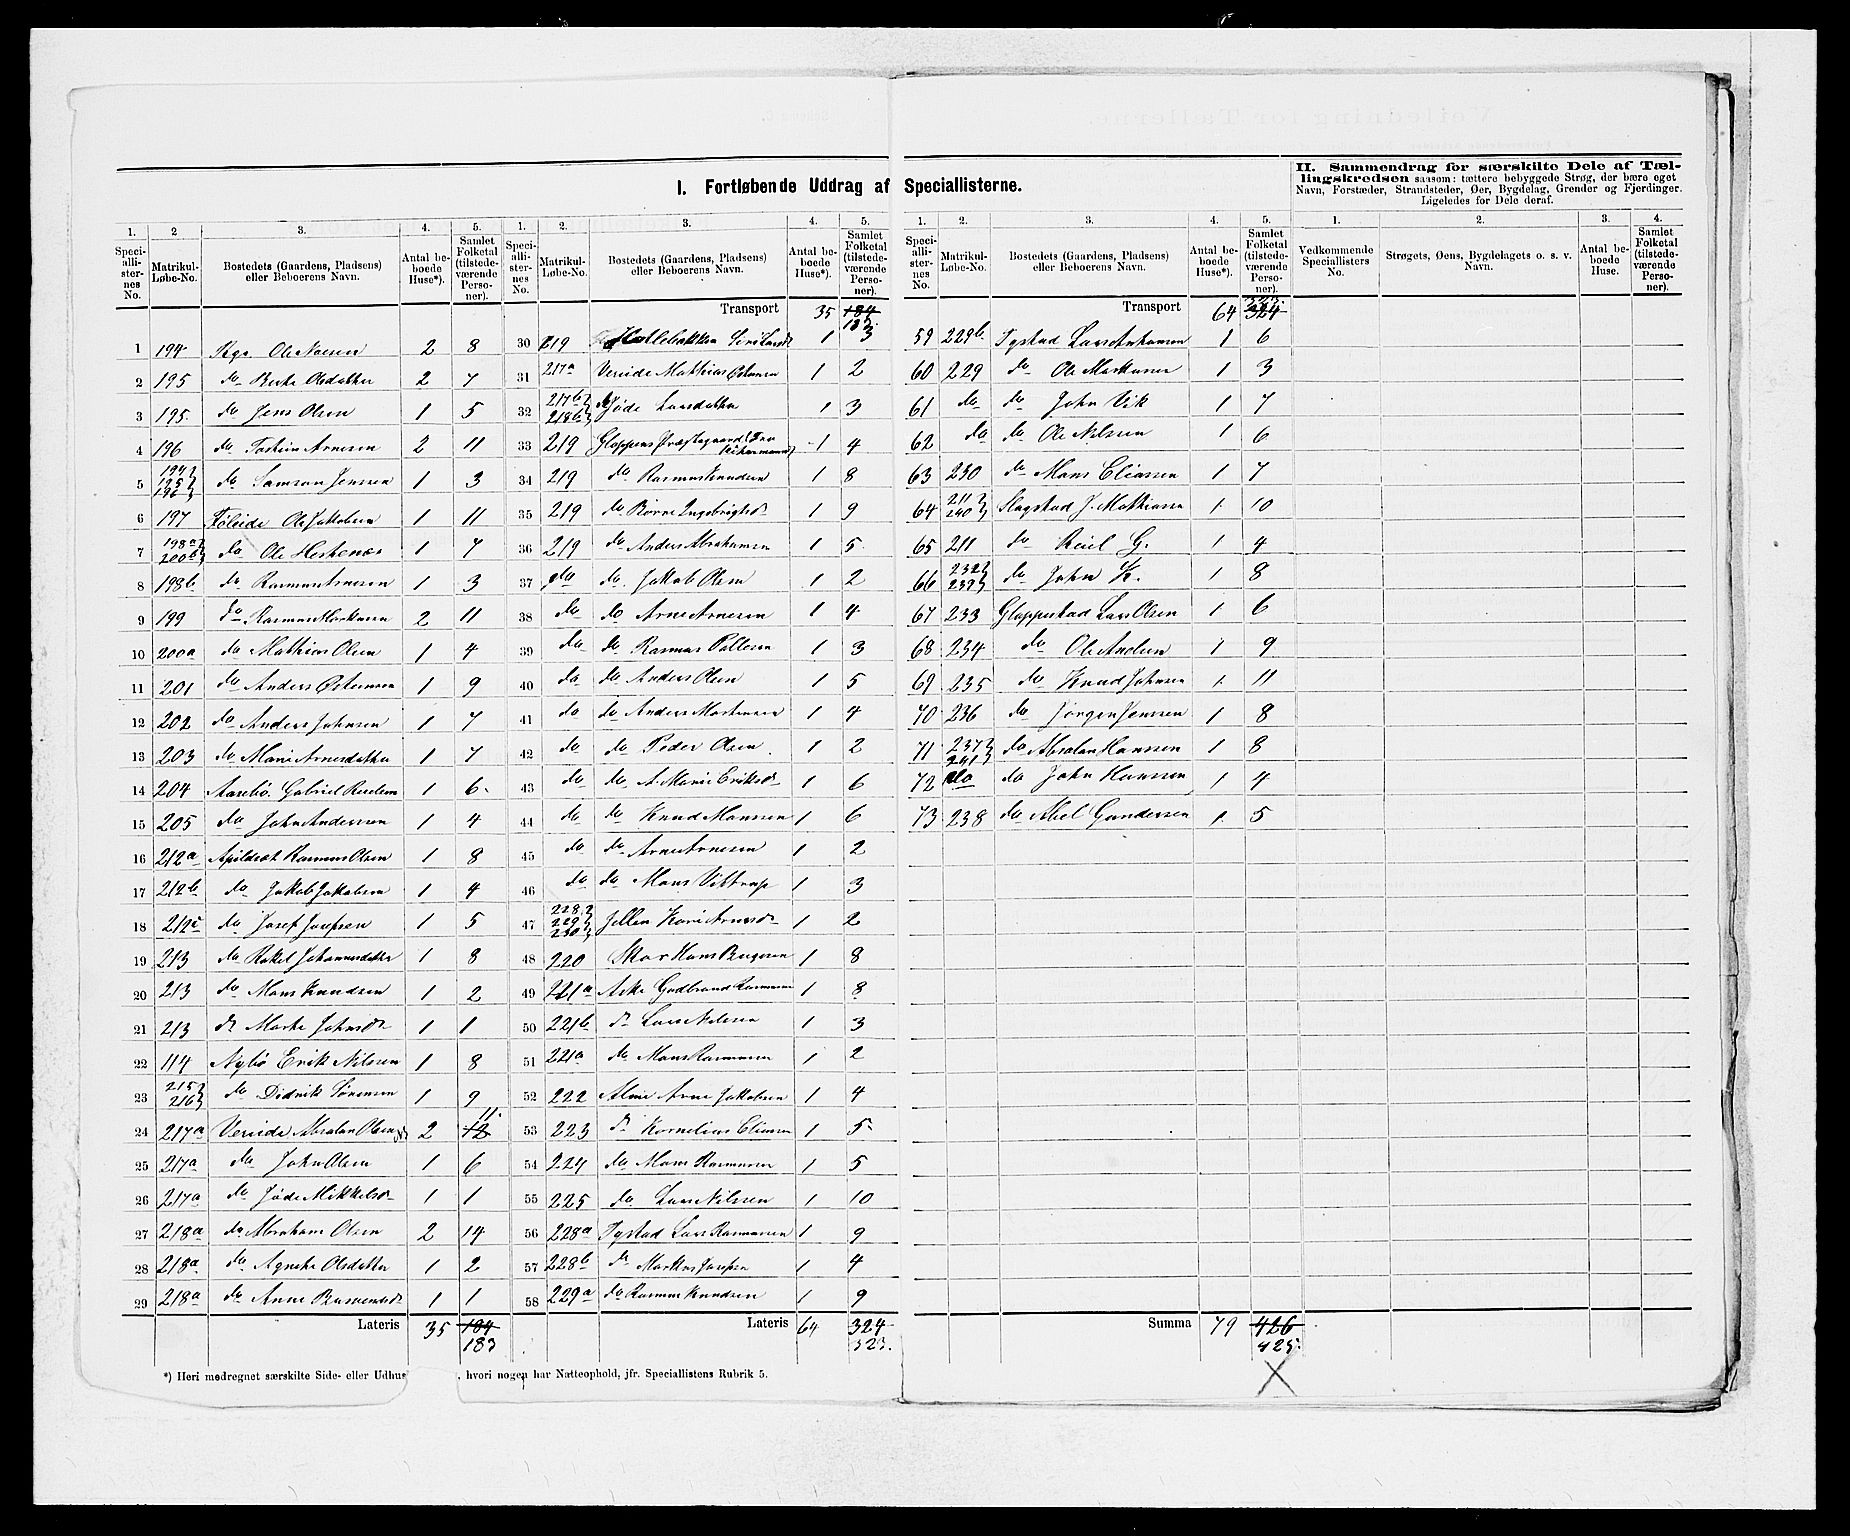 I. Fortløbende Uddrag af Speciallisterne.
II. Sammendrag for særskilte Dele af Tæl-
lingskredsen saasom: tættere bebyggede Strøg, der bære eget
Navn, Forstæder, Strandsteder, Øer, Bygdelag, Grender og Fjerdinger.
Ligeledes for Dele deraf.
1. 2 3. 4. 5.
Speciallisternes No. Matrikul-Løbe-No. Bostedets (Gaardens, Pladsens) eller Beboerens Navn. Antal beboede Huse*). Samlet Folketal (tilstedeværende Personer).
1 194 Ole 2 8
2 195 do Olsdatter 2 7
3 195 do Jens Olsen 1 5
4 196 do Arnesen 2 11
5 194 195 196 do Samson Jenssen 1 3
6 197 Føleide Ole Jakobsen 1 11
7 198a 200b do Ole Hestenes 1 7
8 198b do Rasmus Arnesen 1 3
9 199 do Rasmus Markussen 2 11
10 200a do Mathias Olsen 1 4
11 201 do Anders 1 9
12 202 do Anders Johnsen 1 7
13 203 do Marie Arnesdatter 1 7
14 204 Aasebø Gabriel 1 6
15 205 do John Anderssen 1 4
16 212a Apildsæt Rasmus Olsen 1 8
17 212b do Jakob Jakobsen 1 4
18 212c do Josef Josefsen 1 5
19 213 do Rakel Johannesdatter 1 8
20 213 do Mons Knudsen 1 2
21 213 do Johnsdr 1 1
22 114 Nybø Erik Nilssen 1 8
23 215 216 do Didrik Sørensen 1 9
24 217a Vereide Absalon Olsen 2 12 11
25 217a do John Olsen 1 6
26 217a do Jøde Mikkelsdr 1 1
27 218a do Abraham Olsen 2 14
28 218a do Agnethe Olsdatter 1 2
29 218a do Anne 1 1
Lateris 35 184
183
1. 2. 3. 4. 5.
Speciallisternes No. Matrikul-Løbe-No. Bostedets (Gaardens, Pladsens) eller Beboerens Navn. Antal beboede Huse*). Samlet Folketal (tilstedeværende Personer).
Transport 35 184
183
30 219 1 3
31 217a Vereide Mathias 1 2
32 217b 218b do Jøde Larsdatter 1 3
33 219 Gloppens Præstegaard 1 4
34 219 do Rasmus Knudsen 1 8
35 219 do Ingebrigtsdr 1 9
36 219 do Anders Abrahamsen 1 5
37 do do Jakob Olsen 1 2
38 do do Arne Arnesen 1 4
39 do do Rasmus Pallesen 1 3
40 do do Anders Olsen 1 5
41 do do Anders Mortensen 1 4
42 do do Peder Olsen 1 2
43 do do A. Marie Eriksdr 1 6
44 do do Knud Monssen 1 6
45 do do Arne Arnesen 1 2
46 do do Mons 1 3
47 228 229 230 Kari Arnesdr 1 2
48 220 Hans 1 8
49 221a Aske Gudbrand Rasmussen 1 8
50 221b do Lars Nilssen 1 3
51 221a do Mons Rasmussen 1 2
52 222 Alme Arne Jakobsen 1 4
53 223 do Kornelius Eliassen 1 5
54 224 do Mons Rasmussen 1 5
55 225 do Lars Nilssen 1 10
56 228a Tystad Lars Rasmussen 1 9
57 228b do Markus Josefsen 1 4
58 229a do Rasmus Knudsen 1 9
Lateris 64 324
323.
1. 2. 3. 4. 5.
Speciallisternes No. Matrikul-Løbe-No. Bostedets (Gaardens, Pladsens) eller Beboerens Navn. Antal beboede Huse*). Samlet Folketal (tilstedeværende Personer).
Transport 64 323 324
59 228b Tystad Lars 1 6
60 229 do Ole Markusen 1 3
61 do do John Vik 1 7
62 do do Ole Nilssen 1 6
63 230 do Mons Eliassen 1 7
64 211 240 Slagstad J. Mathiassen 1 10
65 211 do G. 1 4
66 232 239 do John K. 1 8
67 233 Gloppestad Lars Olsen 1 6
68 234 do Ole Andersen 1 9
69 235 do Knud Johnsen 1 11
70 236 do Jørgen Jenssen 1 8
71 237 241 do Absalon Hanssen 1 8
72 do do John Hanssen 1 4
73 238 do Abel Gundersen 1 5
Summa 79 426
425.
1. 2. 3. 4.
Vedkommende Speciallisters No. Strøgets, Øens, Bygdelagets o. s. v. Navn. Antal beboede Huse. Samlet Folketal (tilstedeværende Personer).
*) Heri medregnet særskilte Side- eller Udhus , hvori nogen har Natteophold, jfr. Speciallistens Rubrik 5.